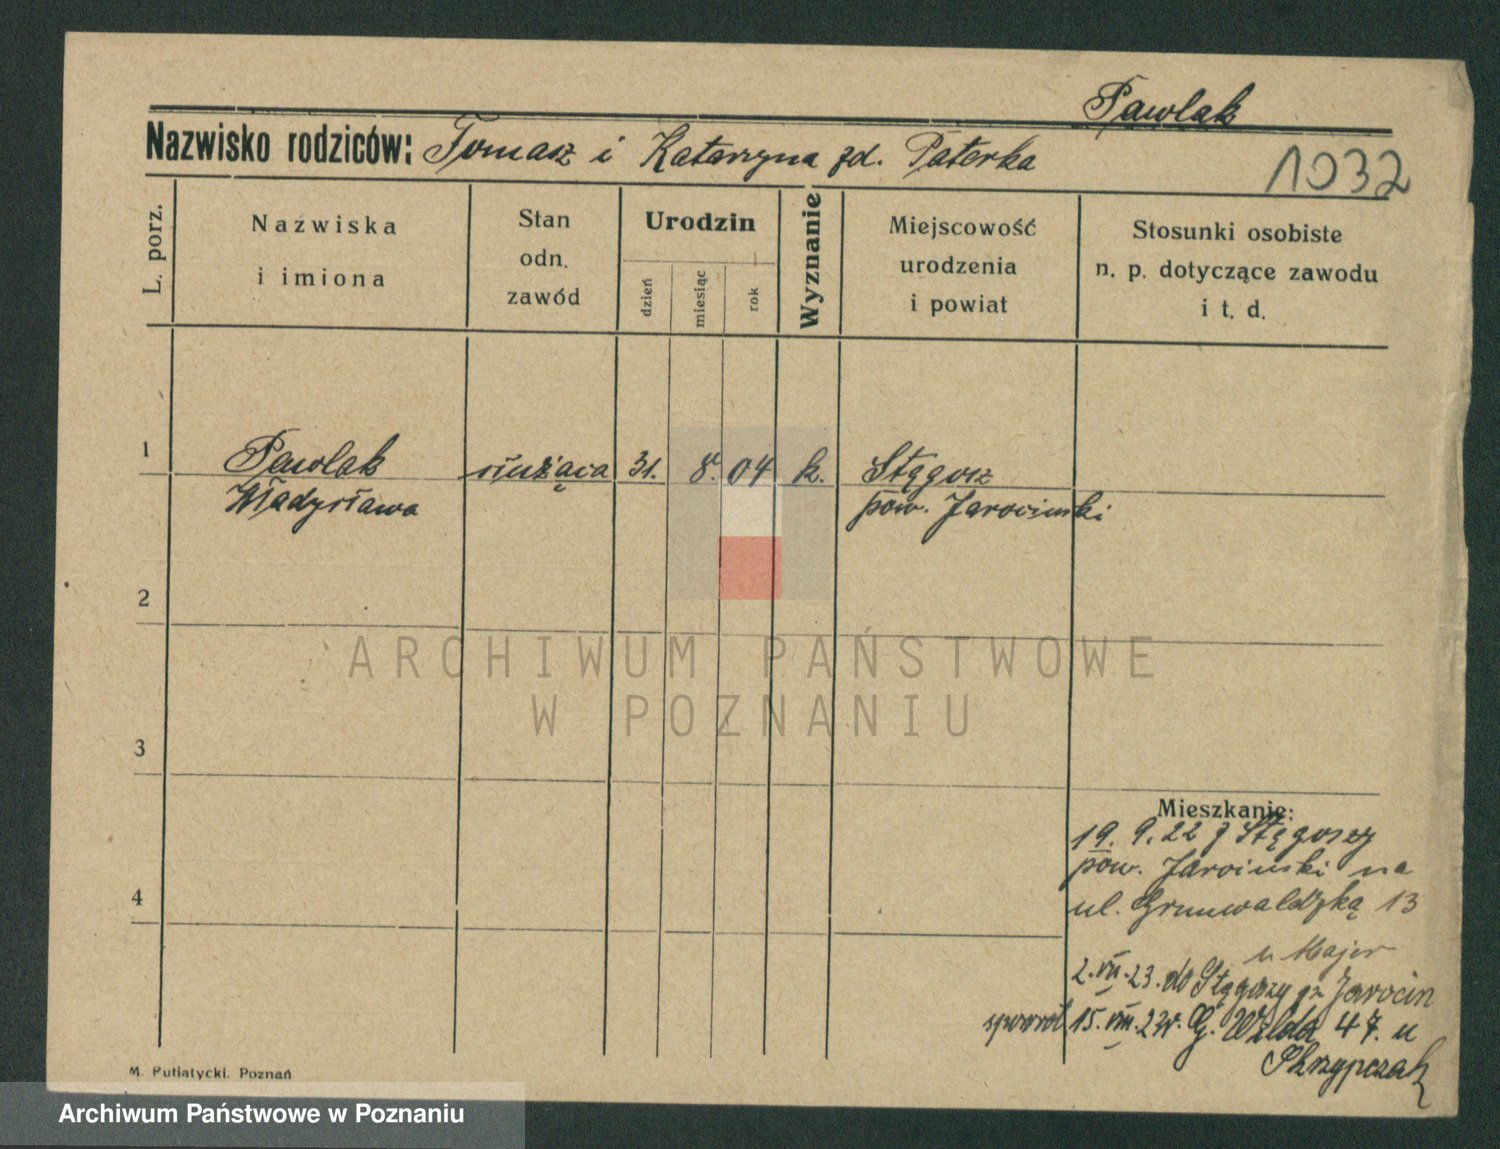 Pawlak
Nazwisko rodziców: Tomasz i Katarzyna zd. Paterka
1032
L. porz.
Nazwiska
i imiona
Stan
odn.
zawód
Urodzin
dzień
miesiąc
rok
Wyznanie
Miejscowość
urodzenia
i powiat
Stosunki osobiste
n. p. dotyczące zawodu
i t. d.
1
Pawlak
Władysława
służąca
31.
8.
04
k.
Stęgosz
pow. Jarociński
2
ARCHIWUM PAŃSTWOWE
W POZNANIU
3
Mieszkanie:
19. 9. 22 z Stęgoszy
pow. Jarociński na
4
ul. Grunwaldzką 13
u Majer
2.VII.23. do Stęgoszy Jarocin
15.VIII.23r. G. Wilda 47. u
Skrzypczak
M. Putiatycki. Poznań
Archiwum Państwowe w Poznaniu